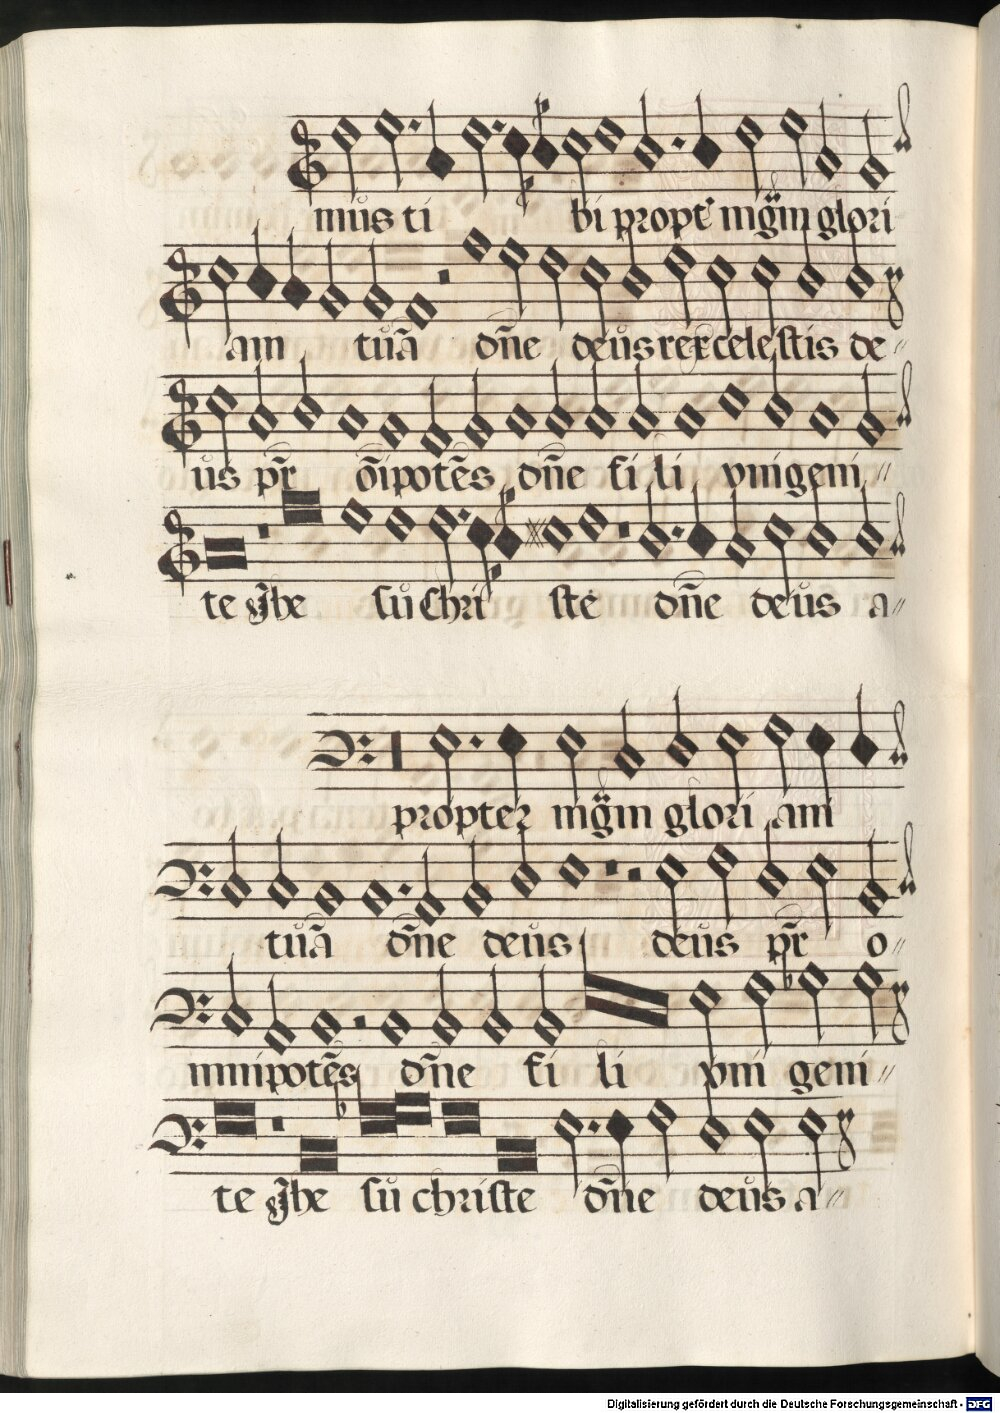 mus ti bi propt' mg̃m glori
am tuā dn̄e deus rex celestis de-
us pr̄ oīpotēs dn̄e fi li vnigeni-
te Jhe su Chri ste dn̄e deus a-
propter mg̃m glori am
tuā dn̄e deus deus pr̄ o-
mnipotēs dn̄e fi li vni geni-
te Jhe su christe dn̄e deus a-
Digitalisierung gefördert durch die Deutsche Forschungsgemeinschaft - DFG